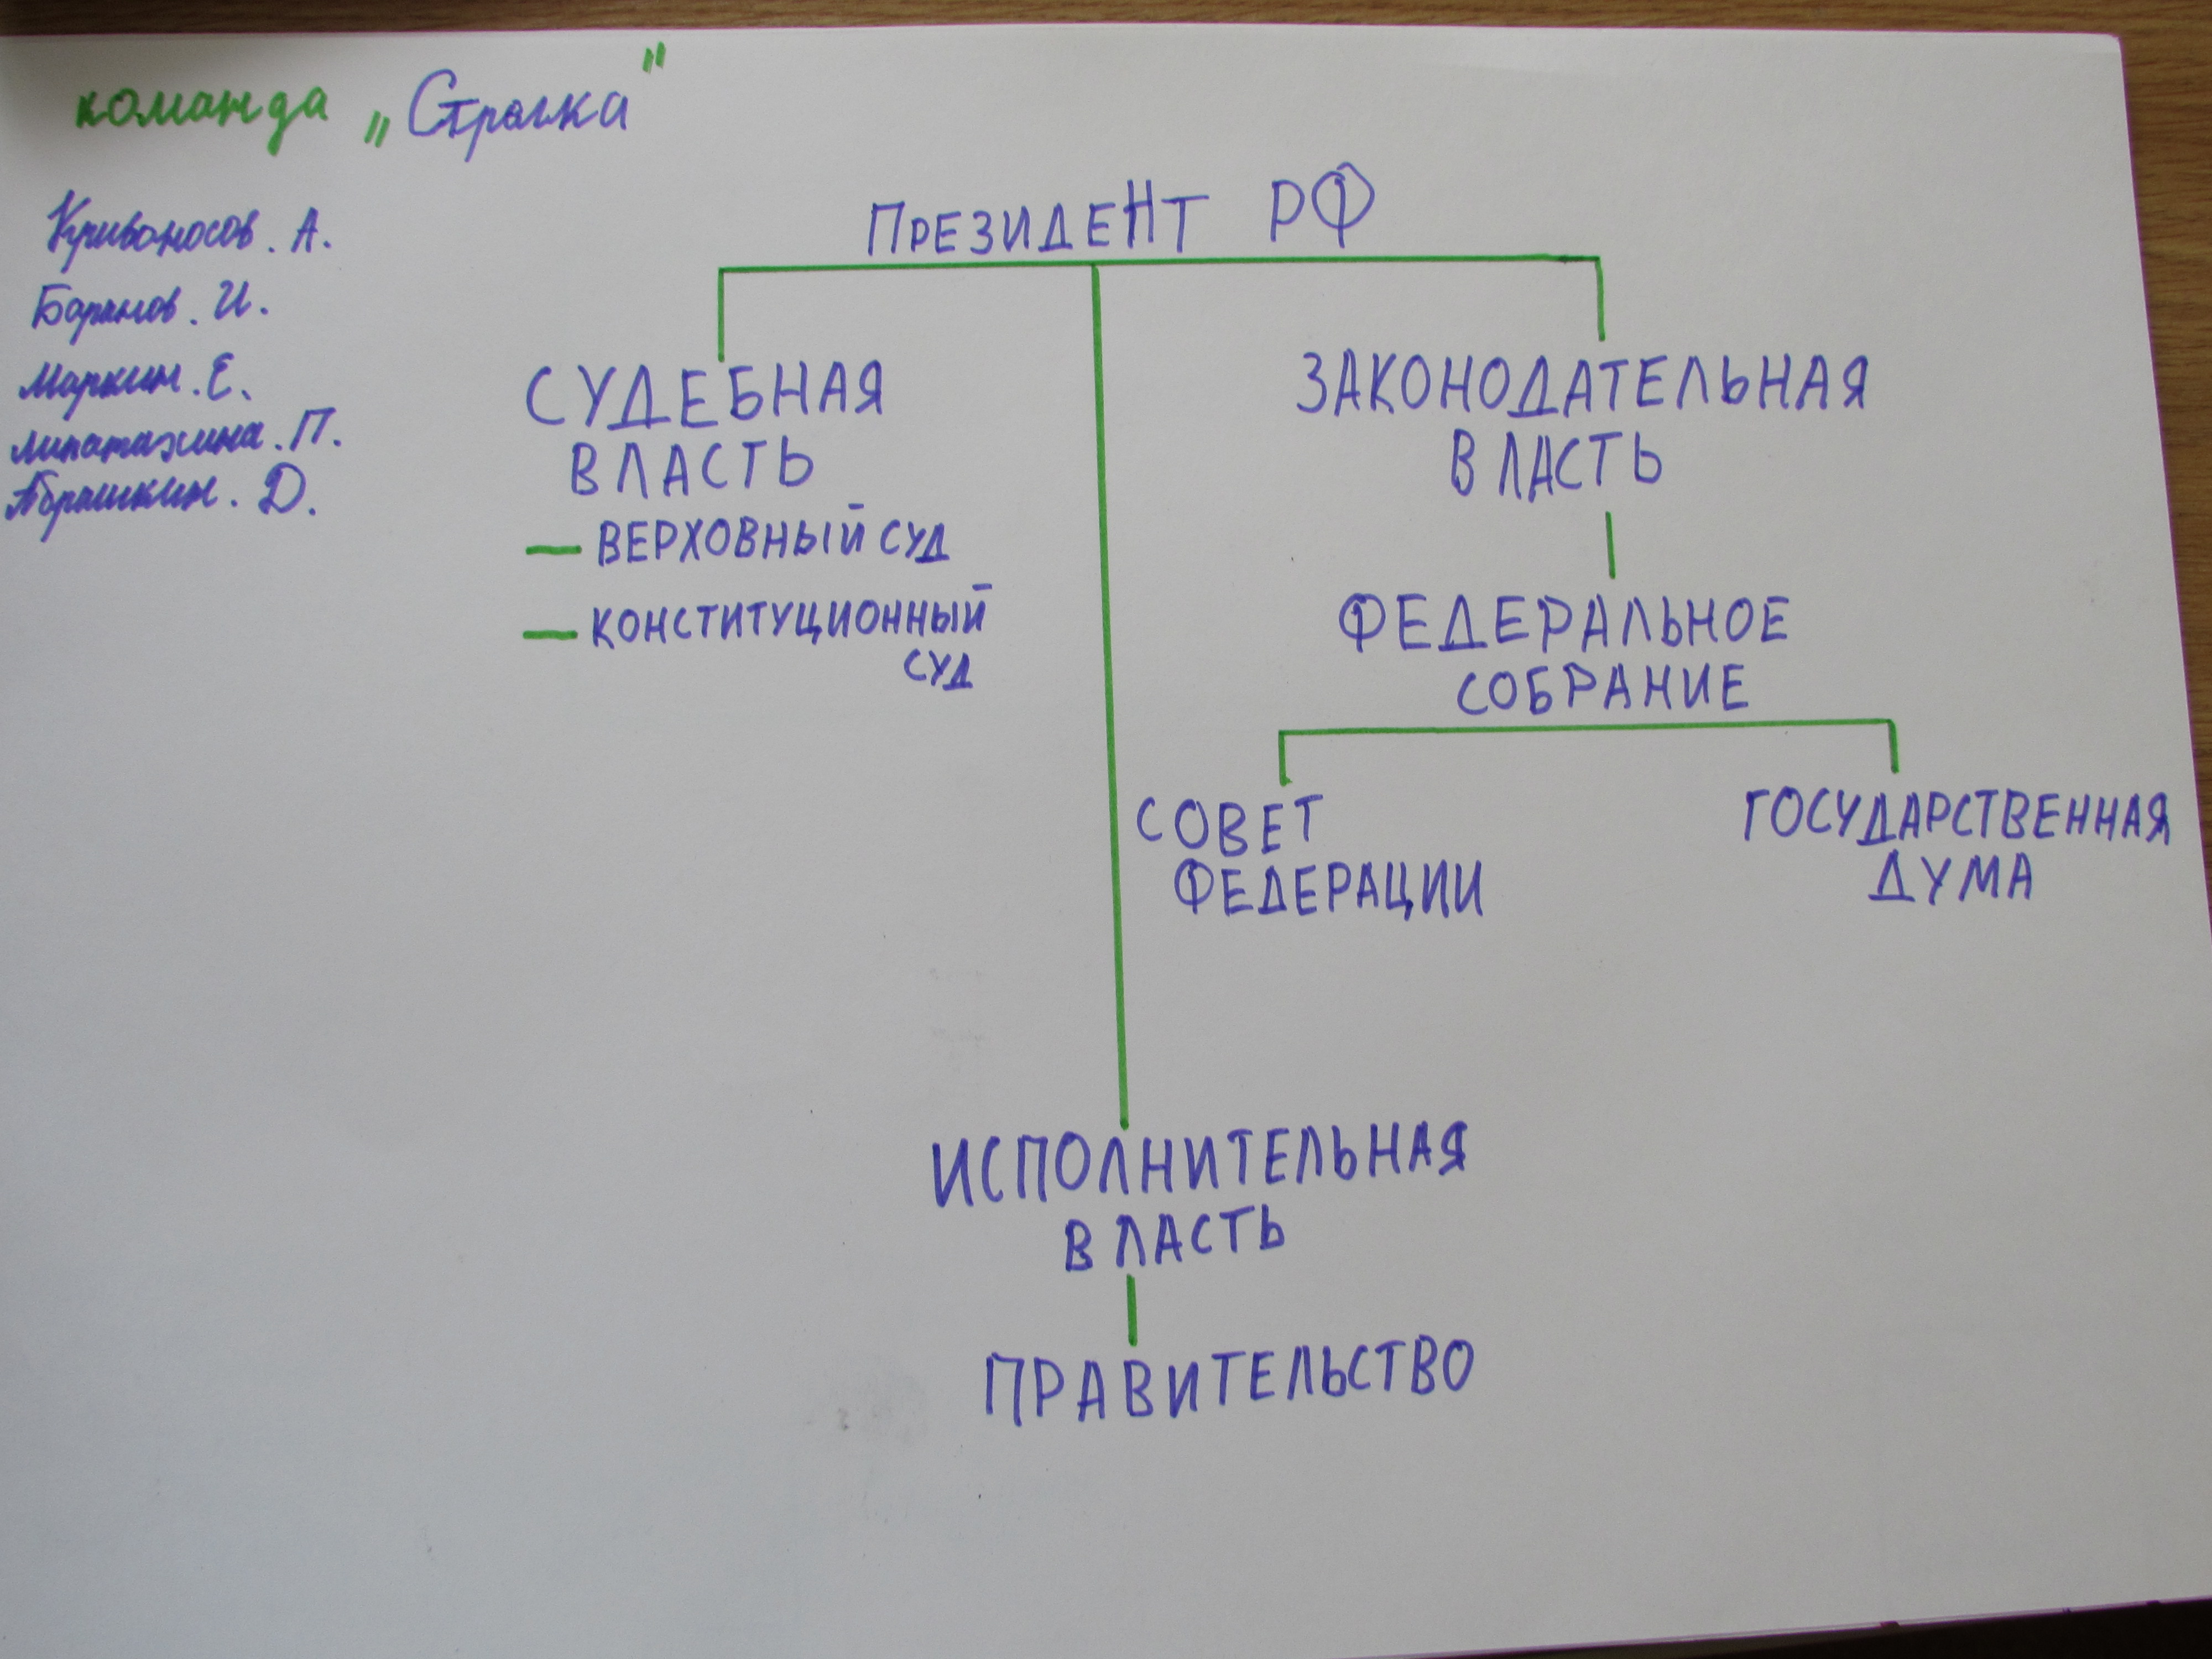 команда
Кривоносов. А.
Баранов. И.
Маркин. Е.
П.
Абрашкин. Д.
ПРЕЗИДЕНТ РФ
СУДЕБНАЯ
ВЛАСТЬ
— ВЕРХОВНЫЙ СУД
— КОНСТИТУЦИОННЫЙ
СУД
ЗАКОНОДАТЕЛЬНАЯ
ВЛАСТЬ
ФЕДЕРАЛЬНОЕ
СОБРАНИЕ
СОВЕТ
ФЕДЕРАЦИИ
ГОСУДАРСТВЕННАЯ
ДУМА
ИСПОЛНИТЕЛЬНАЯ
ВЛАСТЬ
ПРАВИТЕЛЬСТВО